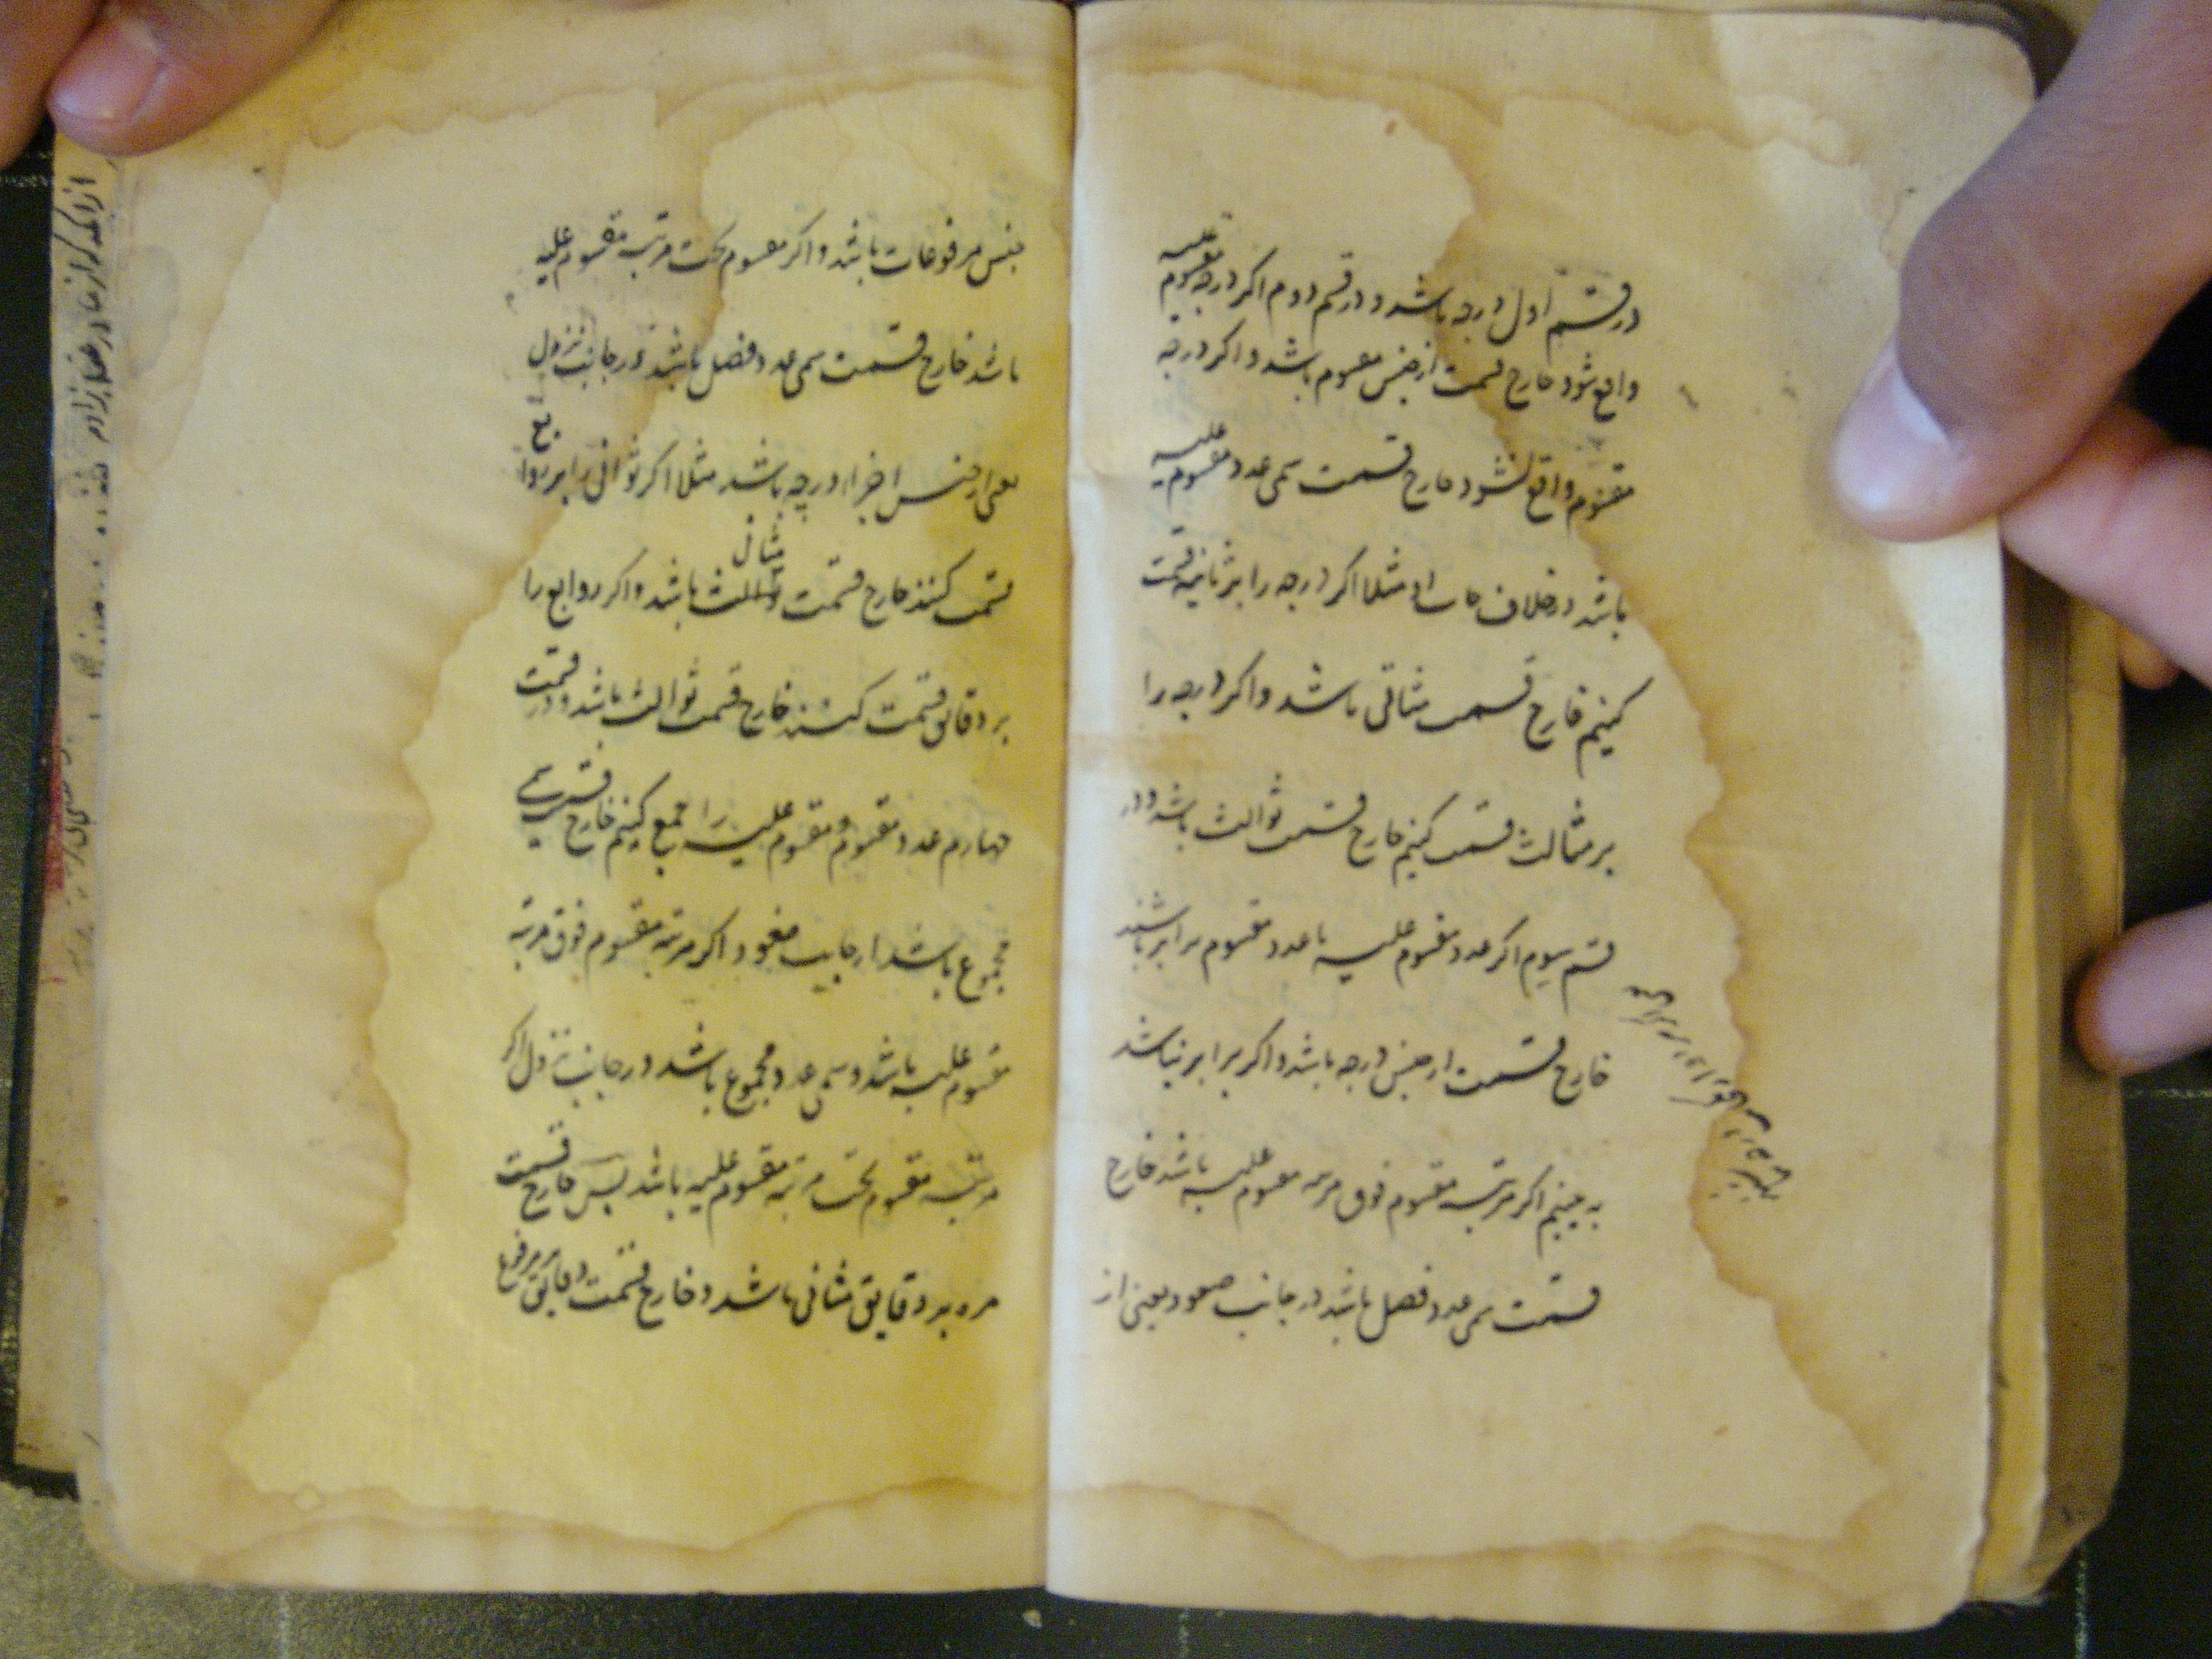 در قسم اول درجه باشد و در قسم دوم اگر درجه مقسوم علیه
واقع شود خارج قسمت از جنس مقسوم باشد و اگر درجه
مقسوم واقع شود خارج قسمت سمی عدد مقسوم علیه
باشد در خلاف جانب او مثلا اگر درجه را بر ثانیه قسمت
کنیم خارج قسمت مثانی باشد و اگر درجه را
بر مثالث قسمت کنیم خارج قسمت ثوالث باشد و در
قسم سوم اگر عدد مقسوم علیه با عدد مقسوم برابر باشند
خارج قسمت از جنس درجه باشد و اگر برابر نباشد
به بینیم اگر مرتبه مقسوم فوق مرتبه مقسوم علیه باشد خارج
قسمت سمی عدد فضل باشد در جانب صعود یعنی از
جنس مرفوعات باشد و اگر مقسوم تحت مرتبه مقسوم علیه
باشد خارج قسمت سمی عدد فضل باشد در جانب نزول
یعنی از جنس اجزاء درجه باشد مثلا اگر ثوانی را بر روابع
قسمت کنند خارج قسمت مثانی باشد و اگر روابع را
بر دقایق قسمت کنند خارج قسمت ثوالث باشد و در قسمت
چهارم عدد مقسوم و مقسوم علیه را جمع کنیم خارج قسمت سمی
مجموع باشد از جانب صعود اگر مرتبه مقسوم فوق مرتبه
مقسوم علیه باشد و سمی عدد مجموع باشد در جانب نزول اگر
مرتبه مقسوم تحت مرتبه مقسوم علیه باشد پس خارج قسمت
مرفوع مره بر دقایق مثانی باشد و خارج قسمت دقایق بر مرفوع